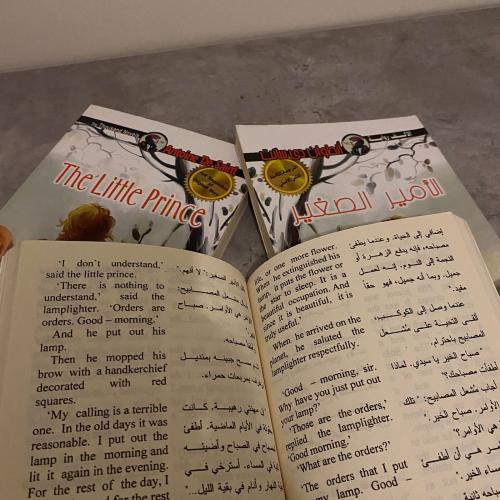 The Thousand Novels
Antoine De Saint
The Little Prince
الألف رواية
أنطوان دي سانت
الأمير الصغير
'I don't understand,'
said the little prince.
'There is nothing to
understand,' said the
lamplighter. 'Orders are
orders. Good – morning.'
And he put out his
lamp.
Then he mopped his
brow with a handkerchief
decorated with red
squares.
'My calling is a terrible
one. In the old days it was
reasonable. I put out the
lamp in the morning and
lit it again in the evening.
For the rest of the day, I
for the rest
الصغير: "لا أفهم."
مشعل المصابيح:
هي الأوامر. صباح
مصباحه.
مسح جبينه بمنديل
بمربعات حمراء.
مهنتي رهيبة. كانت
في الأيام الماضية. أطفئ
في الصباح وأضيئه
في المساء. أسترخي في
النهار وأنام في بقية الليل..."
life, or one more flower.
When he extinguished his
lamp, it puts the flower or
the star to sleep. It is a
beautiful occupation. And
since it is beautiful, it is
truly useful.'
When he arrived on the
planet, he saluted the
lamplighter respectfully.
'Good – morning, sir.
Why have you just put out
your lamp?'
'Those are the orders,'
replied the lamplighter.
'Good morning.'
'What are the orders?'
'The orders that I put
out my lamp. Good –
إضافي إلى الحياة. وعندما يطفئ
مصباحه، فإنه يدفع الزهرة أو
النجمة إلى النوم. إنه لعمل
جميل. وبما أنه جميل، فهو حقا
مفيد."
عندما وصل إلى الكوكب،
ألقى التحية على مشعل
المصابيح باحترام.
"صباح الخير يا سيدي. لماذا
أطفأت مصباحك؟"
أجاب مشعل المصابيح: "تلك
الأوامر. صباح الخير."
هي الأوامر؟"
هي أن أطفئ
مساء الخير."